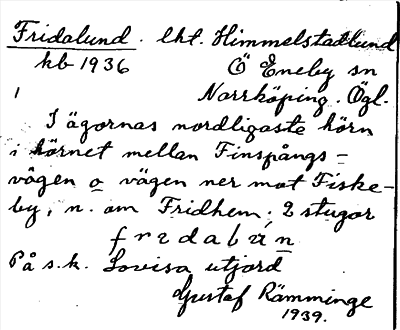 Fridalund. lht. Himmelstadlund
kb 1936 Ö Eneby sn
1 Norrköping. Ögl.
I ägornas nordligaste hörn
i hörnet mellan Finspångs-
vägen o vägen ner mot Fiske-
by, n. om Fridhem; 2 stugor
På s.k. Lovisa utjord
Gustaf Rämminge
1939.